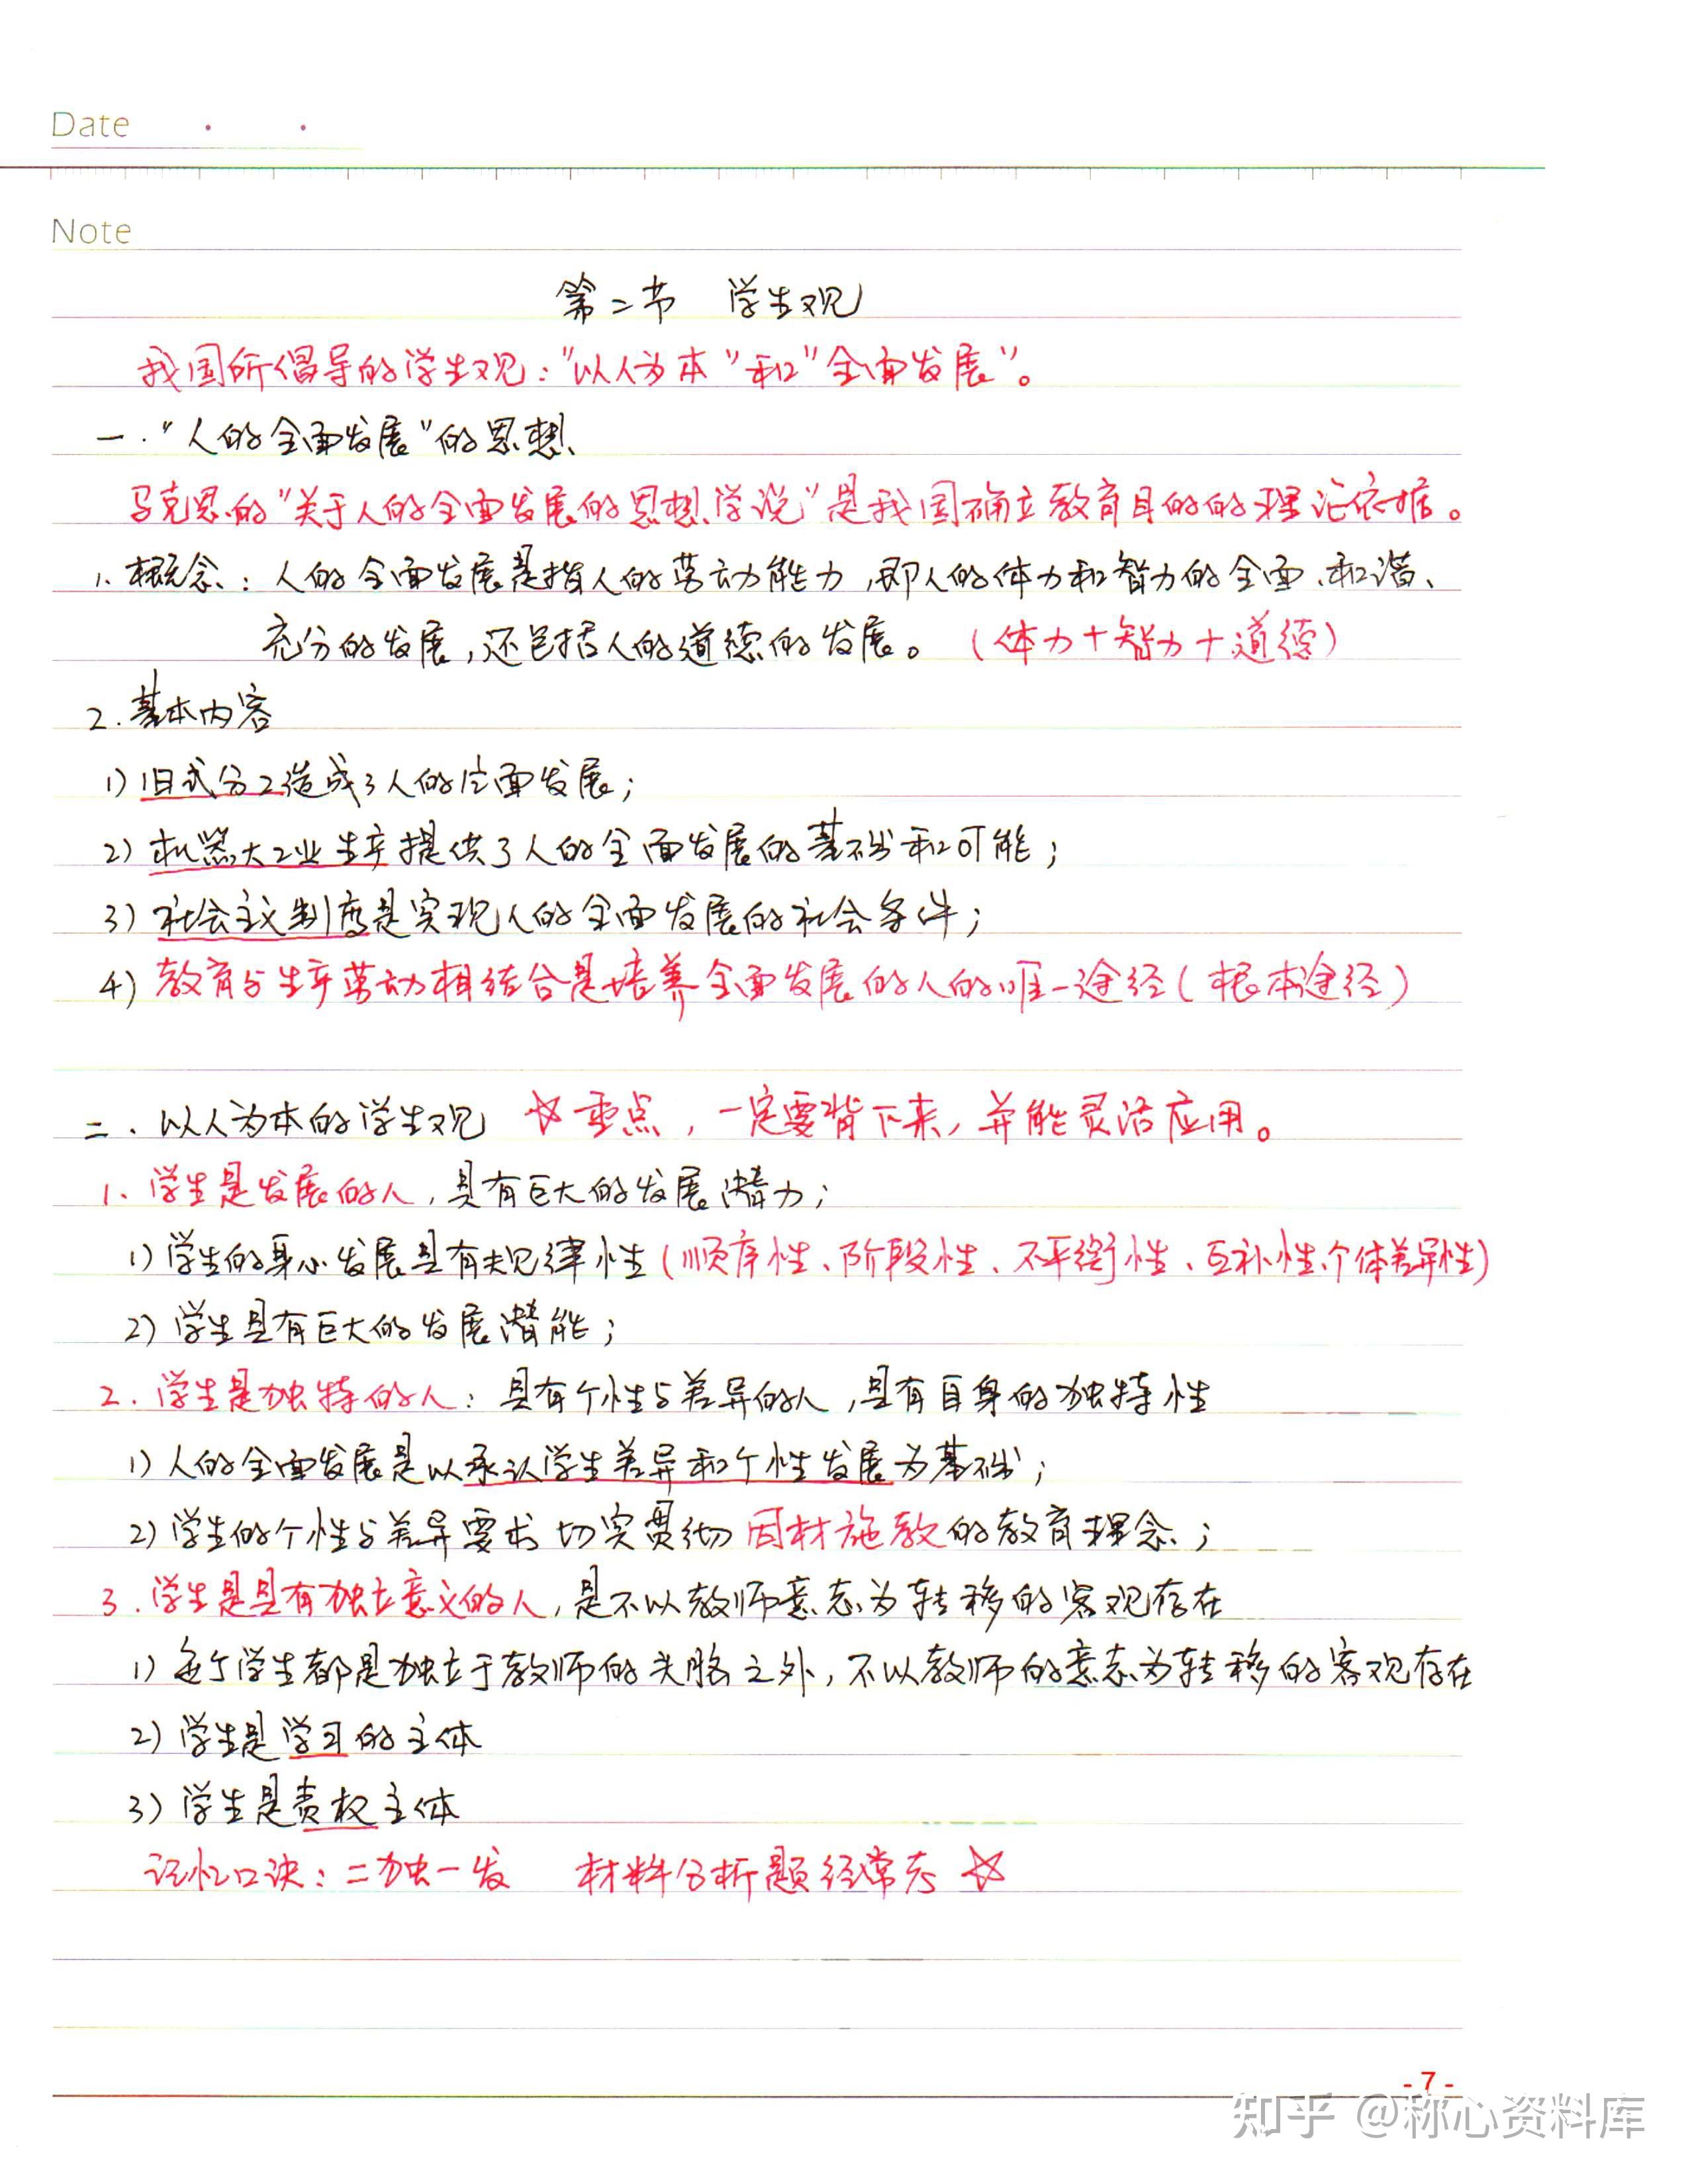 Date
Note
第二节 学生观
我国所倡导的学生观："以人为本"和"全面发展"。
一."人的全面发展"的思想
马克思的"关于人的全面发展的思想学说"是我国确立教育目的的理论依据。
1. 概念：人的全面发展是指人的劳动能力,即人的体力和智力的全面、和谐、
充分的发展,还包括人的道德的发展。（体力+智力+道德）
2.基本内容
1)旧式分工造成了人的片面发展；
2)机器大工业生产提供了人的全面发展的基础和可能；
3)社会主义制度是实现人的全面发展的社会条件；
4)教育与生产劳动相结合是培养全面发展的人的唯一途径(根本途径)
二.以人为本的学生观 ☆重点,一定要背下来,并能灵活应用。
1.学生是发展的人,具有巨大的发展潜力；
1)学生的身心发展是有规律性(顺序性、阶段性、不平衡性、互补性、个体差异性)
2)学生具有巨大的发展潜能；
2.学生是独特的人：具有个性与差异的人,具有自身的独特性
1)人的全面发展是以承认学生差异和个性发展为基础；
2)学生的个性与差异要求切实贯彻因材施教的教育理念；
3.学生是具有独立意义的人,是不以教师意志为转移的客观存在
1)每个学生都是独立于教师的头脑之外,不以教师的意志为转移的客观存在
2)学生是学习的主体
3)学生是责权主体
记忆口诀：二独一发 材料分析题经常考☆
- 7 -
知乎 @称心资料库